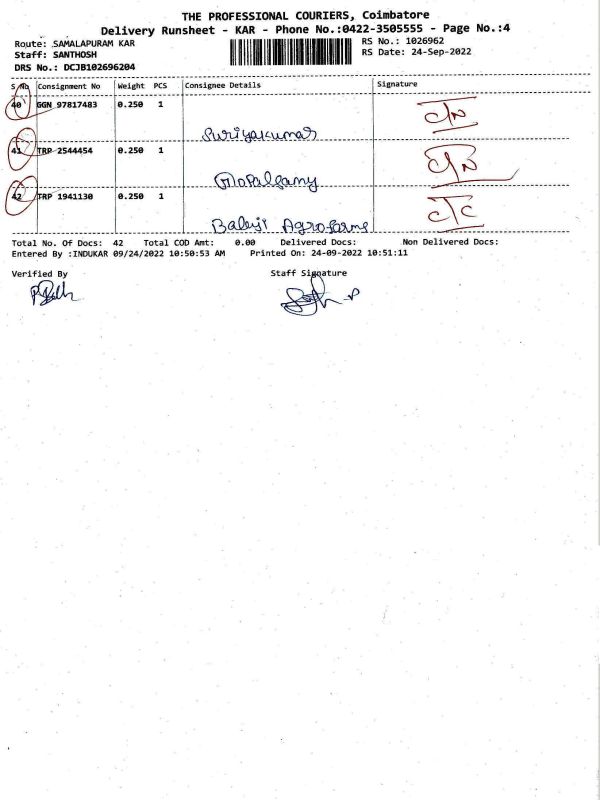 THE PROFESSIONAL COURIERS, Coimbatore
Delivery Runsheet - KAR - Phone No.:0422-3505555 - Page No.:4
Route: SAMALAPURAM KAR RS No.: 1026962
Staff: SANTHOSH RS Date: 24-Sep-2022
DRS No.: DCJB102696204
S No Consignment No Weight PCS Consignee Details Signature
40 GGN 97817483 0.250 1
Suriyakumar
41 TRP 2544454 0.250 1
Gopalsamy
42 TRP 1941130 0.250 1
Balaji Agro farms
Total No. Of Docs: 42 Total COD Amt: 0.00 Delivered Docs: Non Delivered Docs:
Entered By :INDUKAR 09/24/2022 10:50:53 AM Printed On: 24-09-2022 10:51:11
Verified By Staff Signature